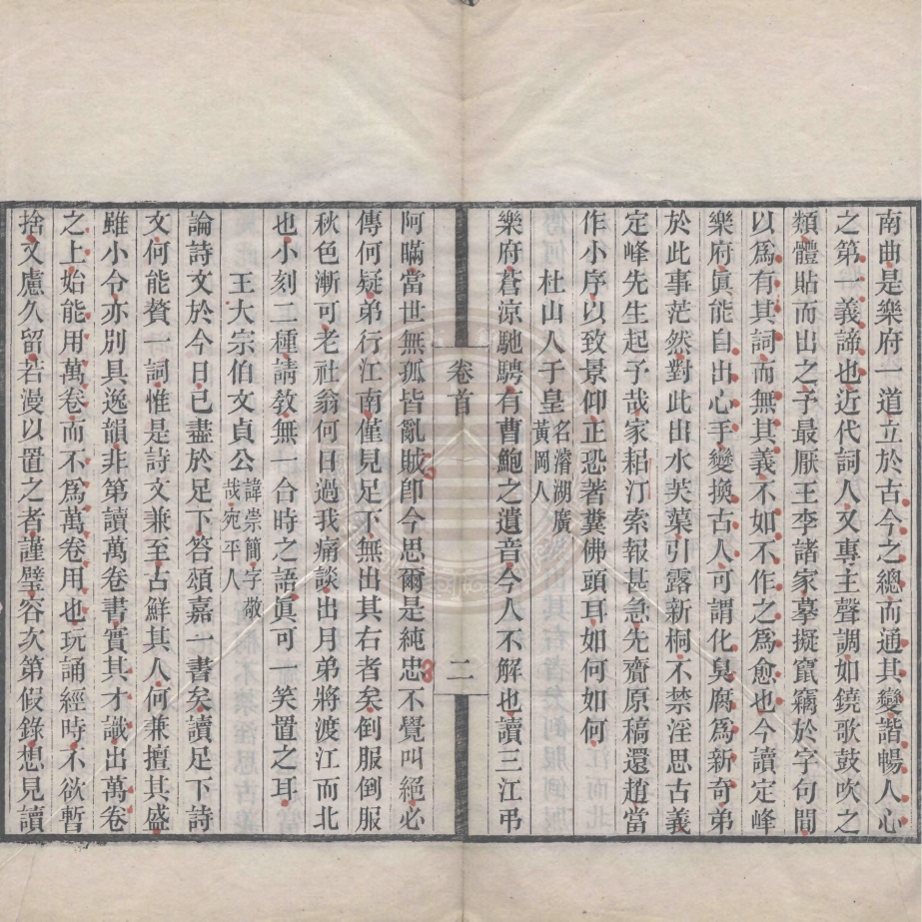 南曲是樂府一道立於古今之總而通其變諧暢人心
之第一義諦也近代詞人又專主聲調如鐃歌鼓吹之
類體貼而出之予最厭王李諸家摹擬竄竊於字句間
以爲有其詞而無其義不如不作之爲愈也今讀定峰
樂府眞能自出心手變換古人可謂化臭腐爲新奇弟
於此事茫然對此出水芙蕖引露新桐不禁淫思古義
定峰先生起予哉家耜汀索報甚急先齎原稿還趙當
作小序以致景仰正恐著糞佛頭耳如何如何
杜山人于皇名濬湖廣黃岡人
樂府蒼涼馳騁有曹鮑之遺音今人不解也讀三江弔
卷首
二
阿瞞當世無孤皆亂賊卽今思爾是純忠不覺叫絕必
傳何疑弟行江南僅見足下無出其右者矣倒服倒服
秋色漸可老社翁何日過我痛談出月弟將渡江而北
也小刻二種請敎無一合時之語眞可一笑置之耳
王大宗伯文貞公諱崇簡字敬哉宛平人
論詩文於今日已盡於足下答頌嘉一書矣讀足下詩
文何能贅一詞惟是詩文兼至古鮮其人何兼擅其盛
雖小令亦別具逸韻非第讀萬卷書實其才識出萬卷
之上始能用萬卷而不爲萬卷用也玩誦經時不欲暫
捨又慮久留若漫以置之者謹璧容次第假錄想見讀